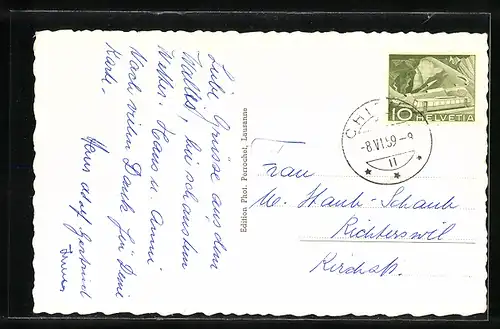 Liebe Grüsse aus dem
Wallis, bei schönstem
Wetter. Hans u. Anni
Noch vielen Dank für Deine
Karte.
Hans
Edition Phot. Perrochet, Lausanne
10 HELVETIA
-8.VI.59-8
11
Frau
M. Staub-Schaub
Richterswil